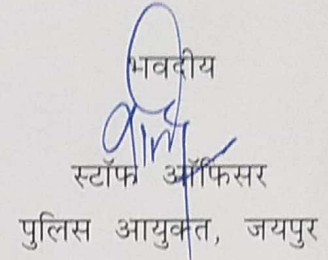 भवदीय
स्टॉफ ऑफिसर
पुलिस आयुक्त, जयपुर